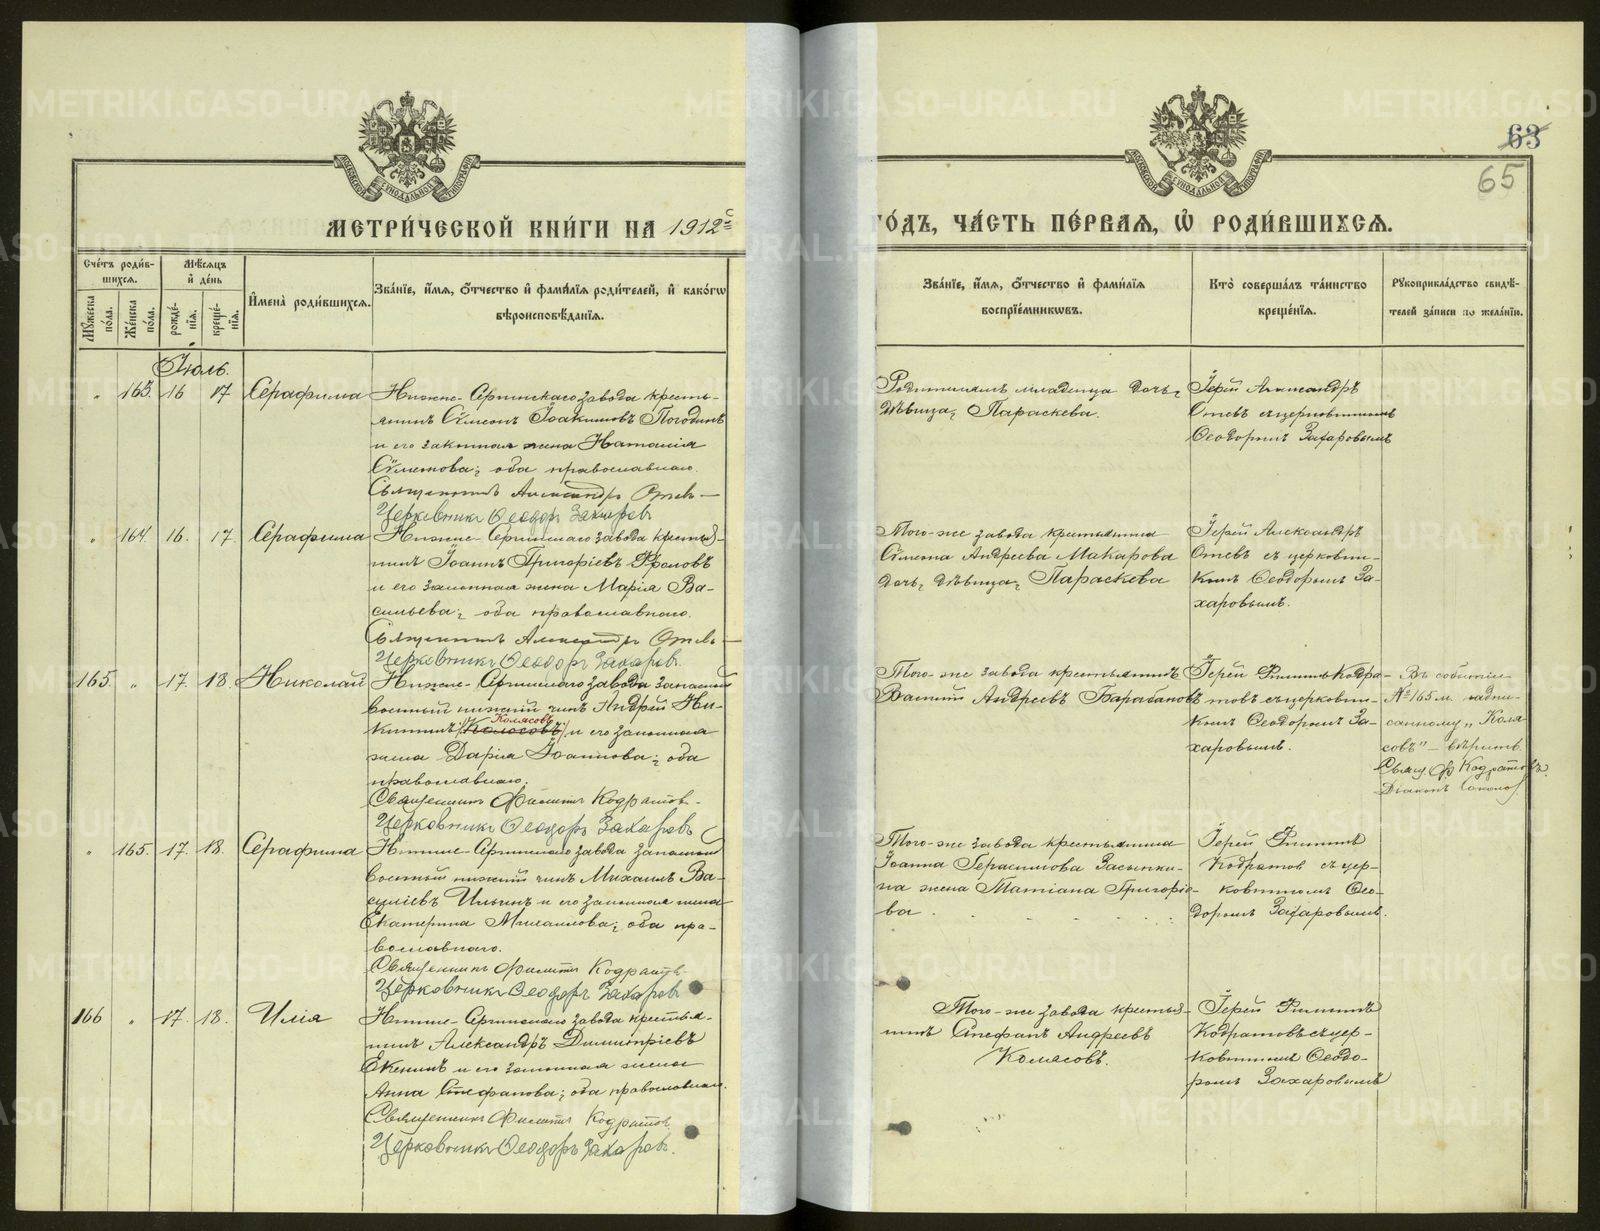 63
65
МЕТРИ́ЧЕСКОЙ КНИ́ГИ НА 1912й
ГО́ДЪ, ЧА́СТЬ ПЕ́РВАЯ, Ѡ҆ РОДИ́ВШИХСЯ.
Сче́тъ роди́в-
шихся.
Му́жеска по́ла.
Же́нска по́ла.
Мѣ́сяцъ
и҆ де́нь
рожде́-
нїя.
креще́-
нїя.
И҆мена̀ роди́вшихся.
Зва́нїе, и҆́мя, ѻ҆́тчество и҆ фами́лїя роди́телей, и҆ како́гѡ
вѣроисповѣ́данїя.
Зва́нїе, и҆́мя, ѻ҆́тчество и҆ фами́лїя
воспрїе́мникѡвъ.
Кто̀ соверша́лъ та́инство
креще́нїя.
Рꙋкоприкла́дство свидѣ́-
телей за́писи по жела́нїю.
Іюль.
" 163. 16 17 Серафима
Нижне-Сергинскаго завода кресть-
янинъ Сѵмеонъ Іоакимовъ Погодинъ
и его законная жена Наталія
; оба православнаго.
Священникъ Александръ
Церковникъ Ѳеодоръ Захаровъ
Родителямъ младенца дочь,
дѣвица, Параскева.
Іерей Александръ
съ церковникомъ
Ѳеодоромъ Захаровымъ
" 164. 16. 17. Серафима
Нижне-Сергинскаго завода крестья-
нинъ Іоаннъ Григоріевъ Фроловъ
и его законная жена Марія Ва-
сильева; оба православнаго.
Священникъ Александръ
Церковникъ Ѳеодоръ Захаровъ.
Того-же завода крестьянина
Сѵмеона Андреева Макарова
дочь, дѣвица, Параскева
Іерей Александръ
съ церковни-
комъ Ѳеодоромъ За-
харовымъ.
165. " 17. 18. Николай
Нижне-Сергинскаго завода запасный
военный нижній чинъ Андрей Ни-
Колясовъ
китинъ (Колосовъ) и его законная
жена Дарія Іоаннова; оба
православнаго.
Священникъ Филиппъ Кодратовъ.
Церковникъ Ѳеодоръ Захаровъ
Того-же завода крестьянинъ
Василій Андреевъ Барабановъ
Іерей Филиппъ Кодра-
товъ съ церковни-
комъ Ѳеодоромъ За-
харовымъ.
Въ событіи
№ 165 м. надпи-
санному "Коля-
совъ" – вѣрить.
Свящ. Ф. Кодратовъ.
Діаконъ
" 165. 17. 18. Серафима
Нижне-Сергинскаго завода запасный
военный нижній чинъ Михаилъ Ва-
силіевъ Ильинъ и его законная жена
Екатерина Михаилова; оба пра-
вославнаго.
Священникъ Филиппъ Кодратовъ.
Церковникъ Ѳеодоръ Захаровъ
Того-же завода крестьянина
Іоанна Герасимова Засыпки-
на жена Татіана Григоріе-
ва.
Іерей Филиппъ
Кодратов съ цер-
ковникомъ Ѳео-
доромъ Захаровымъ.
166 " 17. 18. Илія
Нижне-Сергинскаго завода крестья-
нинъ Александръ Димитріевъ
Екенинъ и его законная жена
Анна Стефанова; оба православнаго.
Священникъ Филиппъ Кодратовъ.
Церковникъ Ѳеодоръ Захаровъ.
Того-же завода крестья-
нинъ Стефанъ Андреевъ
Колясовъ.
Іерей Филиппъ
Кодратовъ съ цер-
ковникомъ Ѳеодо-
ромъ Захаровымъ